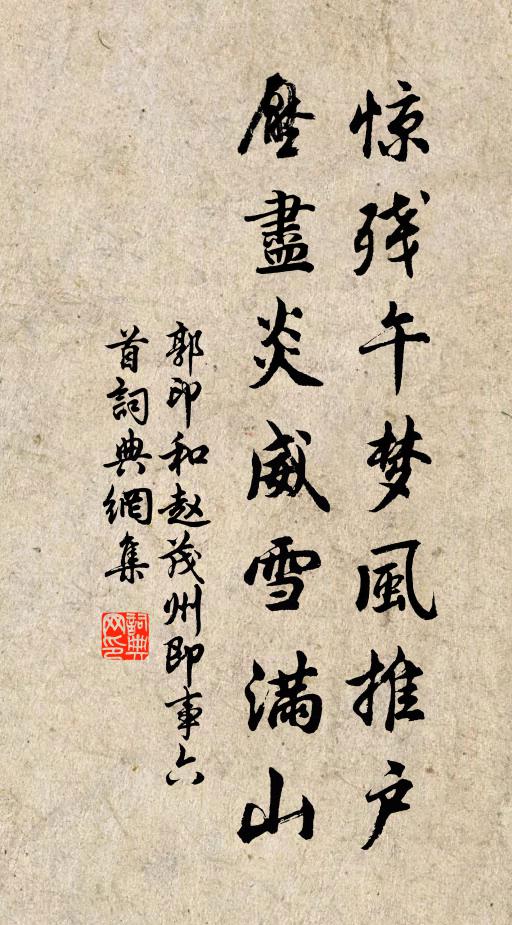 惊残午梦風推户
壓盡炎威雪满山
郭印和赵茂州即事六
首詞典網集
詞典
网印